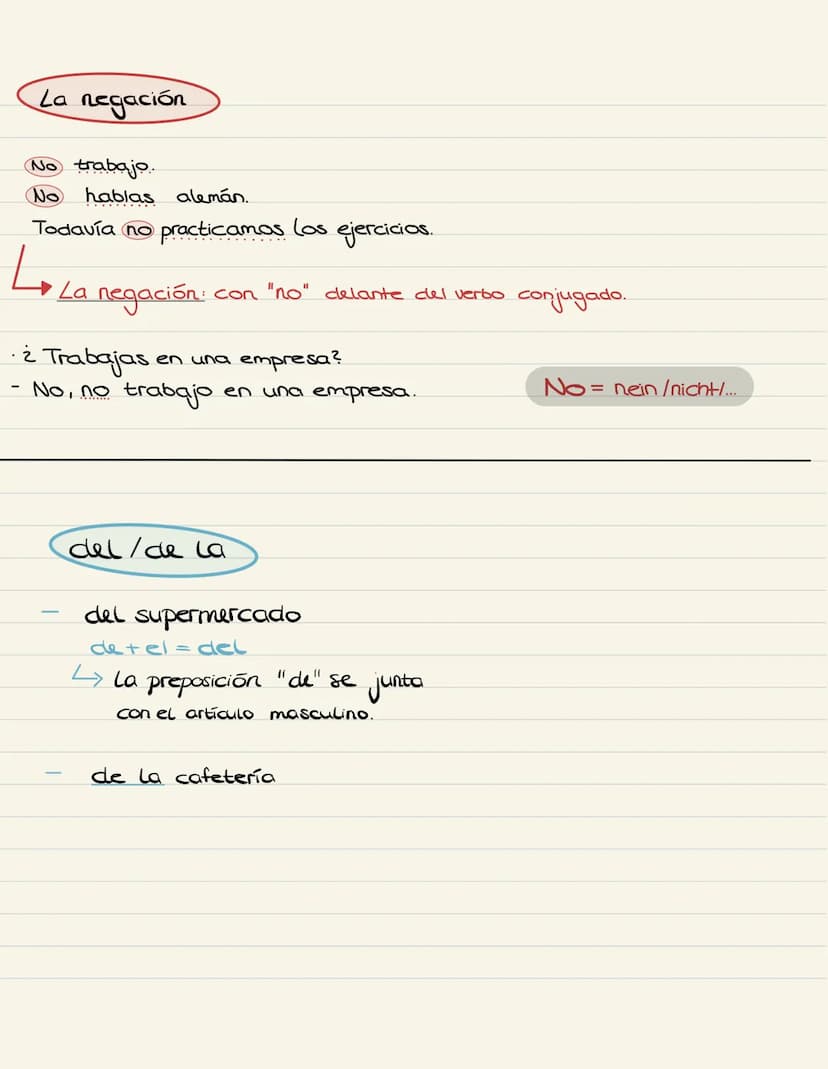 La negación
No trabajo.
No hablas alemán.
Todavía no practicamos los ejercicios.
La negación: con "no" delante del verbo conjugado.
· ¿ Trabajas en una empresa?
- No, no trabajo en una empresa.
No = nein /nicht/...
del / de la
– del supermercado
de + el = del
↳ La preposición "de" se junta
con el artículo masculino.
– de la cafetería